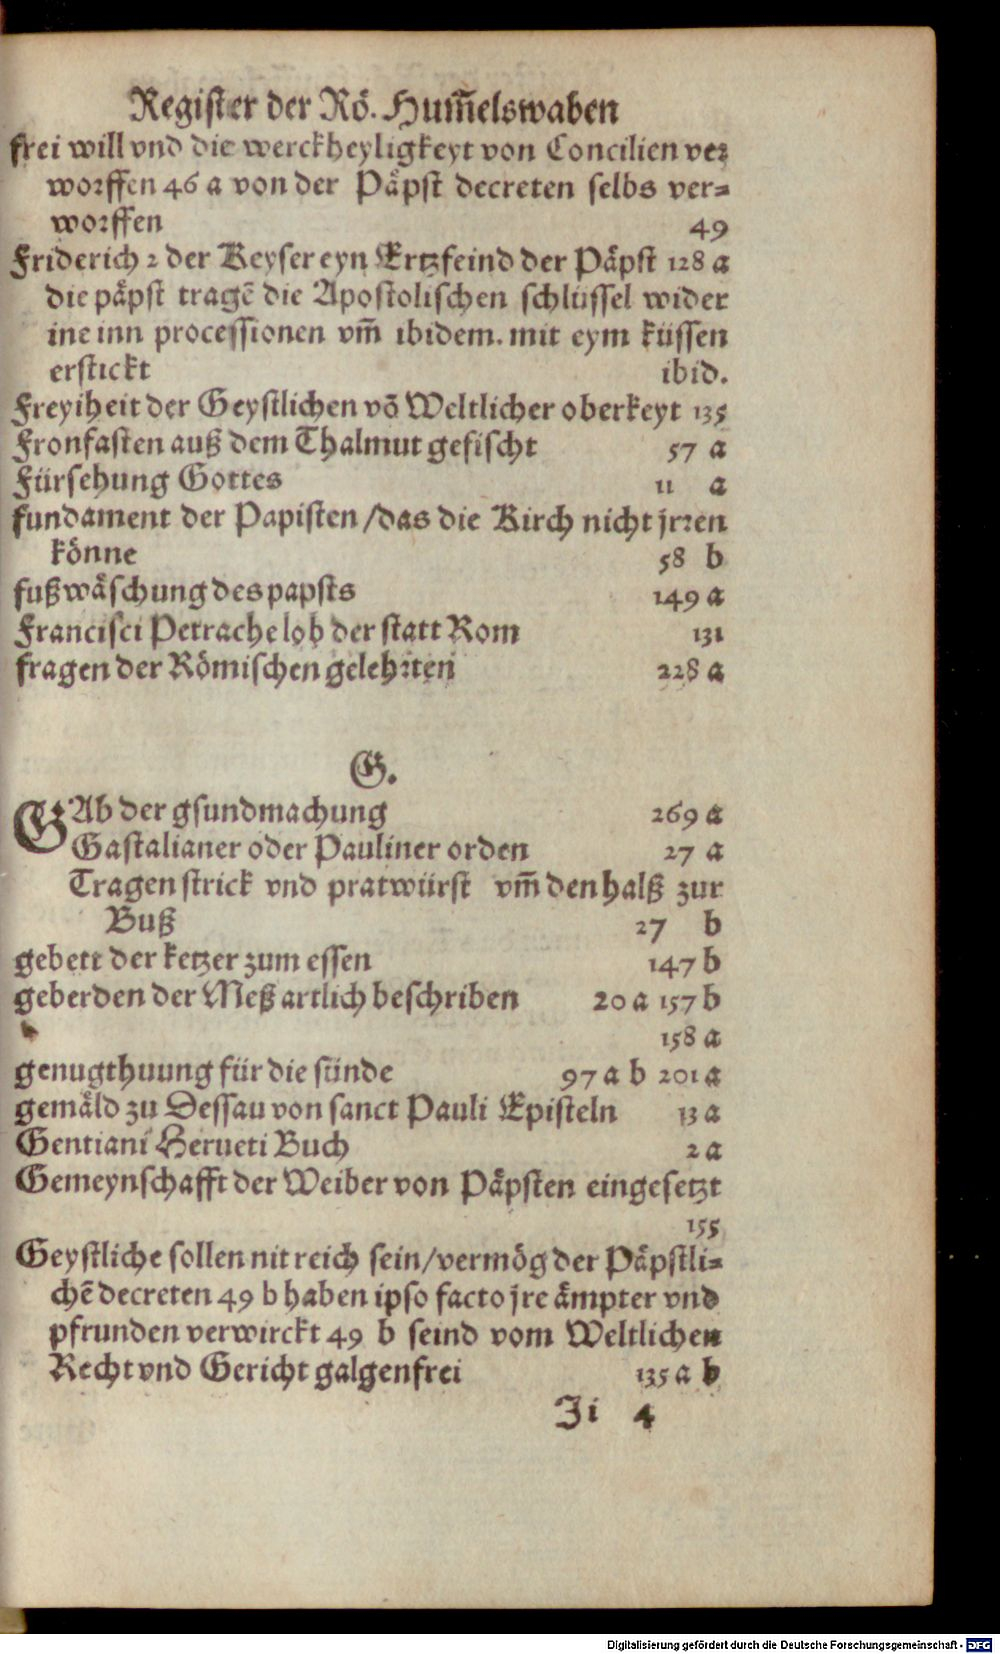 Register der Rö. Hum̃elswaben
frei will vnd die werckheyligkeyt von Concilien ver
worffen 46 a von der Päpst decreten selbs ver=
worffen 49
Friderich 2 der Keyser eyn Ertzfeind der Päpst 128 a
die päpst tragẽ die Apostolischen schlüssel wider
ine inn processionen vm̃ ibidem. mit eym küssen
erstickt ibid.
Freyiheit der Geystlichen võ Weltlicher oberkeyt 135
Fronfasten auß dem Thalmut gefischt 57 a
Fürsehung Gottes 11 a
fundament der Papisten /das die Kirch nicht jrren
könne 58 b
fußwäschung des papsts 149 a
Francisci Petrache lob der statt Rom 131
fragen der Römischen gelehrten 228 a
G.
GAb der gsundmachung 269 a
Gastalianer oder Pauliner orden 27 a
Tragen strick vnd pratwürst vm̃ den halß zur
Buß 27 b
gebett der ketzer zum essen 147 b
geberden der Meß artlich beschriben 20 a 157 b
158 a
genugthuung für die sünde 97 a b 201 a
gemäld zu Dessau von sanct Pauli Episteln 13 a
Gentiani Herueti Buch 2 a
Gemeynschafft der Weiber von Päpsten eingesetzt
155
Geystliche sollen nit reich sein/vermög der Päpstli=
chẽ decreten 49 b haben ipso facto jre ämpter vnd
pfrunden verwirckt 49 b seind vom Weltlichen
Recht vnd Gericht galgenfrei 135 a b
Ji 4
Digitalisierung gefördert durch die Deutsche Forschungsgemeinschaft - DFG